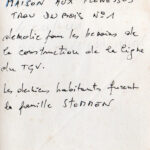 MAISON AUX
TROU DU BOIS N°1
démolie pour les besoins de
la construction de la ligne
du TGV.
Les derniers habitants furent
la famille STORMEN